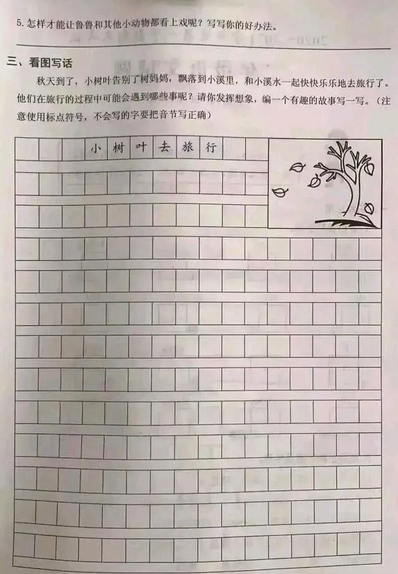 5. 怎样才能让鲁鲁和其他小动物都看上戏呢？写写你的好办法。
三、看图写话
秋天到了，小树叶告别了树妈妈，飘落到小溪里，和小溪水一起快快乐乐地去旅行了。
他们在旅行的过程中可能会遇到哪些事呢？请你发挥想象，编一个有趣的故事写一写。（注
意使用标点符号，不会写的字要把音节写正确）
小树叶去旅行